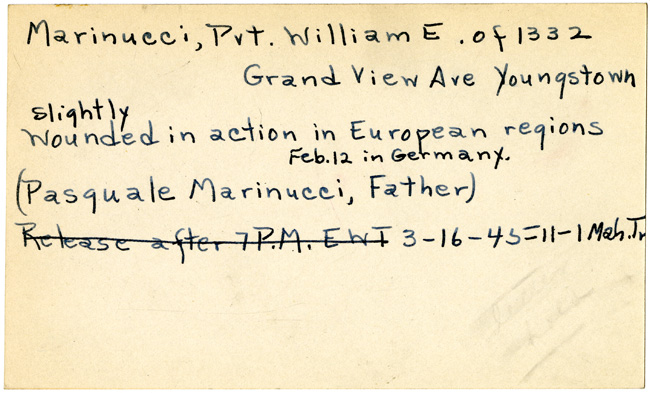 Marinucci, Pvt. William E. of 1332
Grand View Ave Youngstown
slightly
Wounded in action in European regions
Feb. 12 in Germany.
(Pasquale Marinucci, Father)
Release after 7 P.M. EWT 3-16-45=11-1 Mah. Tr